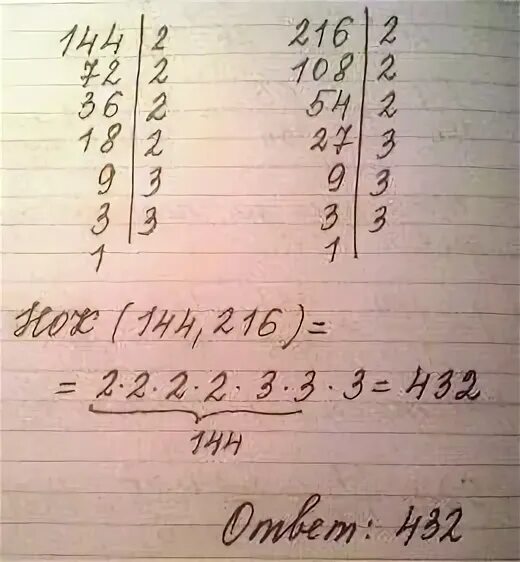 144 | 2 216 | 2
72 | 2 108 | 2
36 | 2 54 | 2
18 | 2 27 | 3
9 | 3 9 | 3
3 | 3 3 | 3
1 1
НОК (144, 216) =
= 2·2·2·2·3·3·3 = 432
144
Ответ: 432